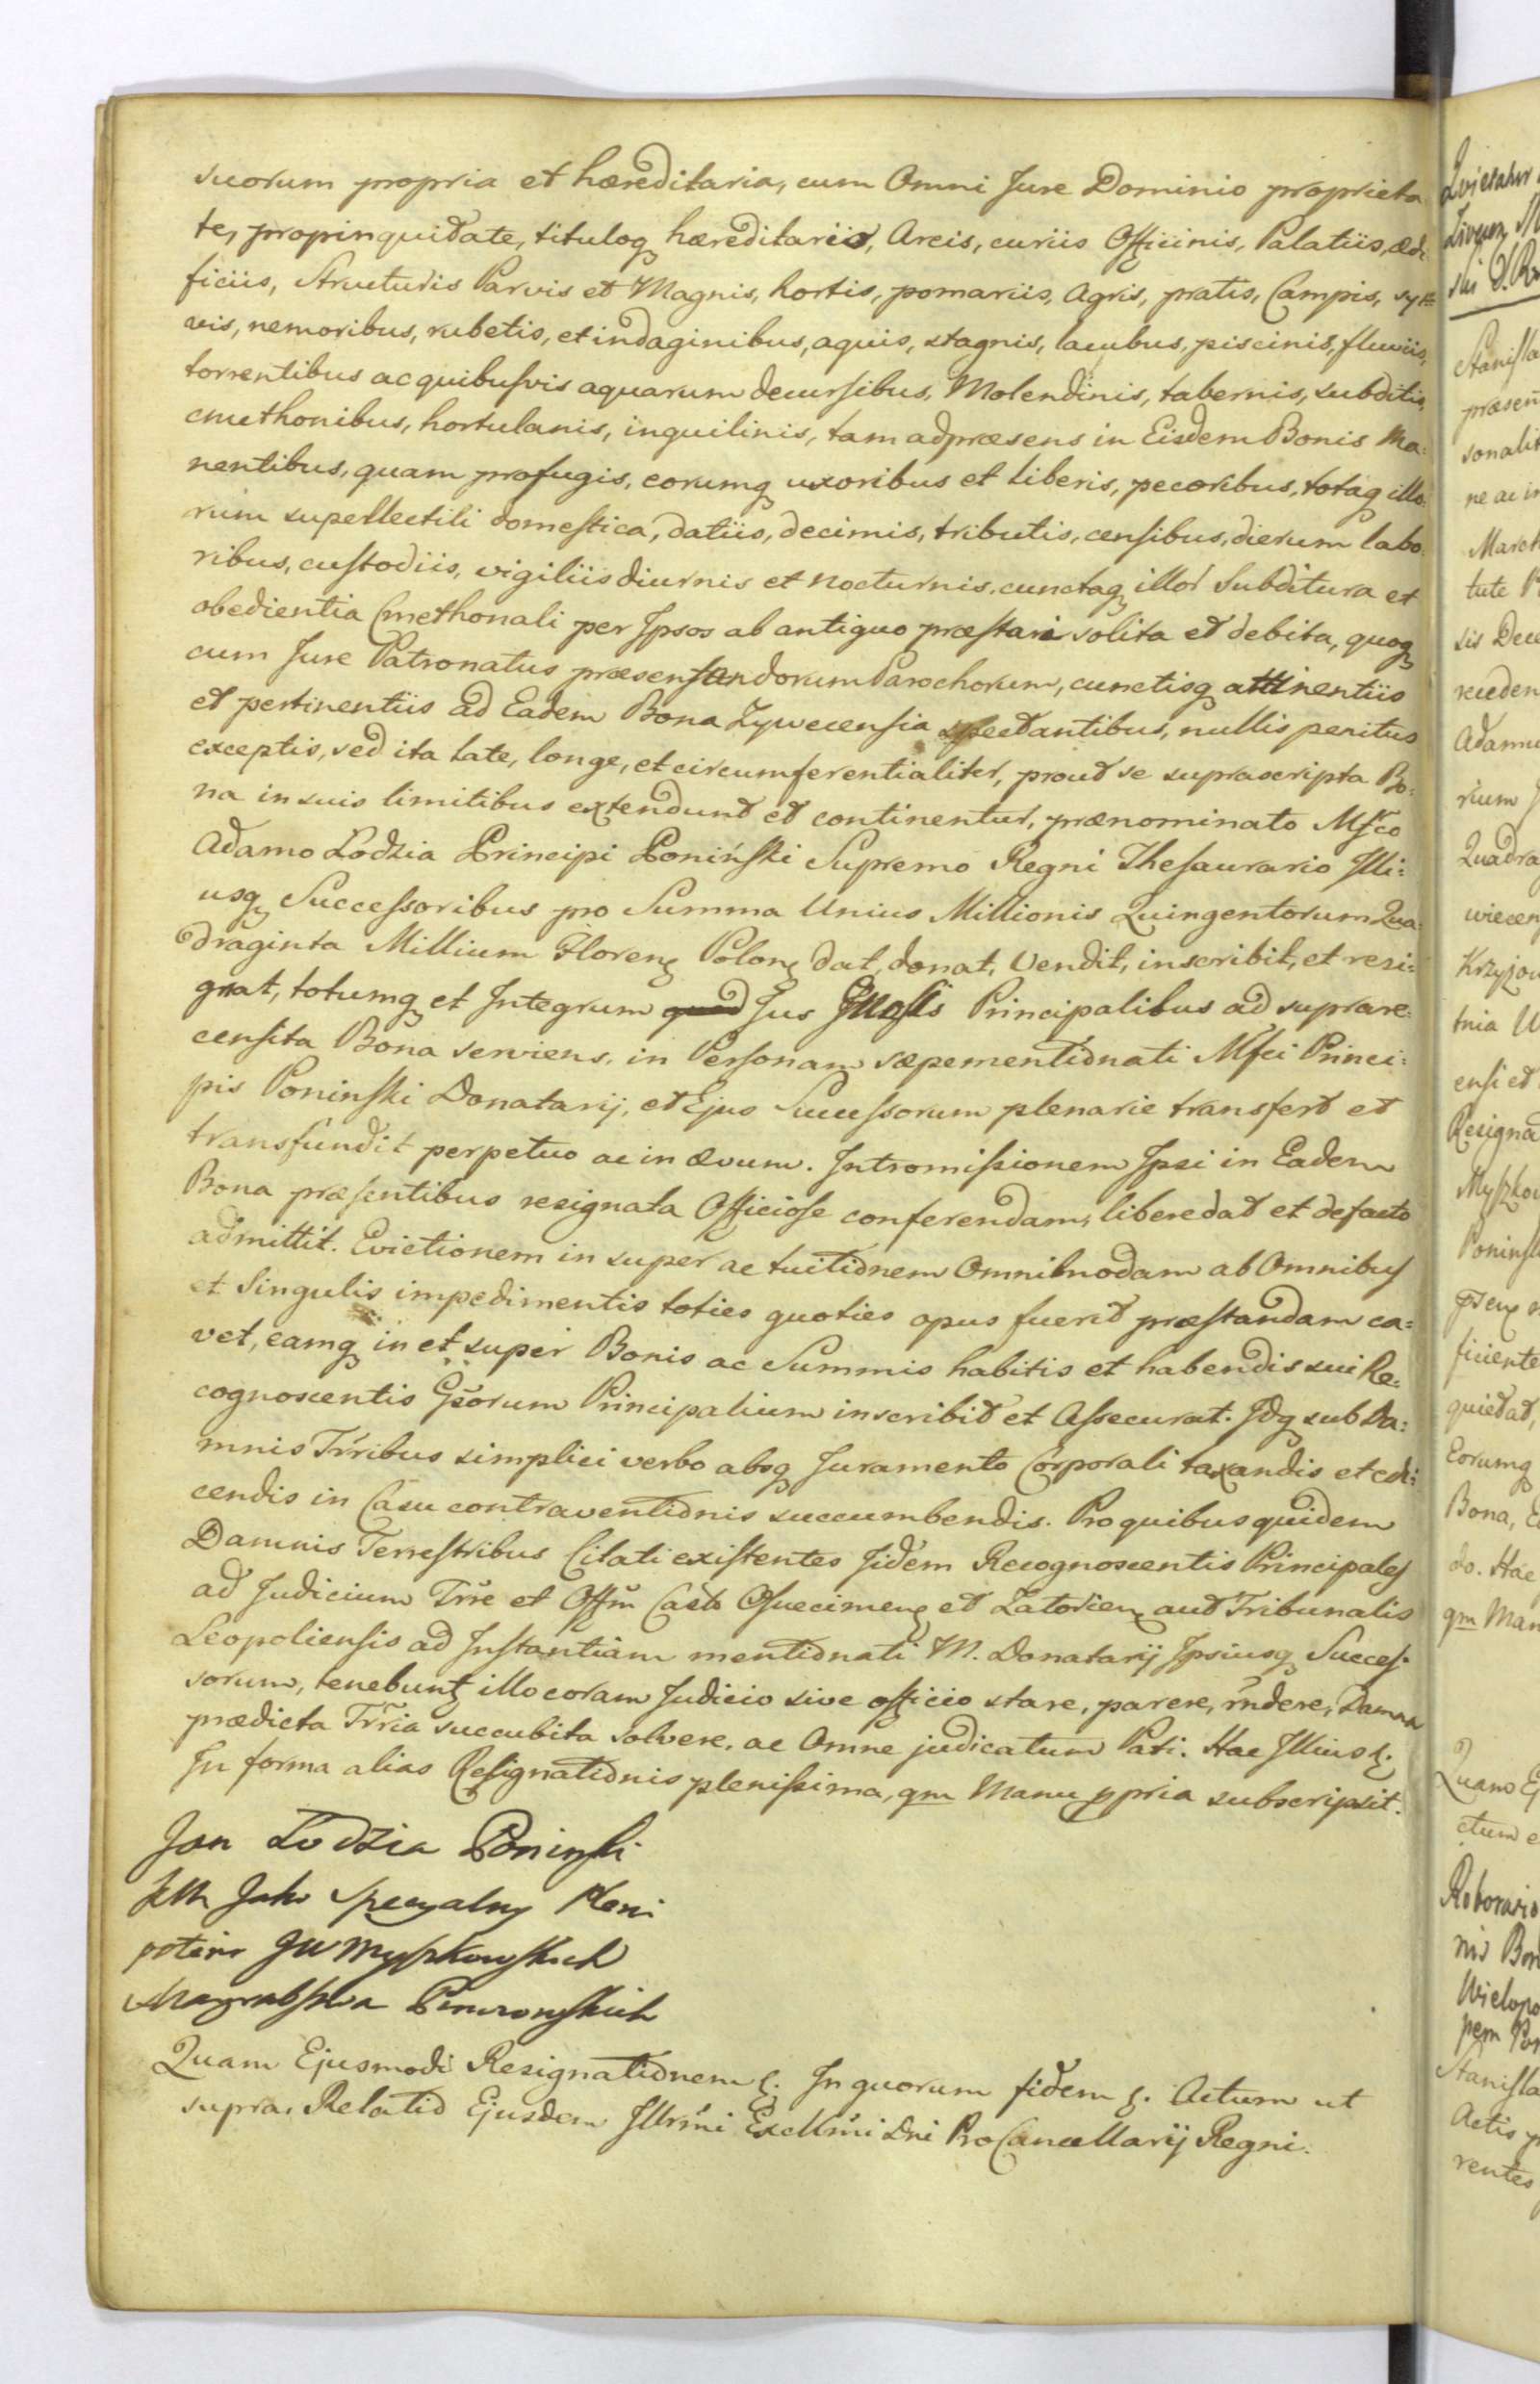 suorum propria et hæreditaria, cum Omni Jure Dominio proprieta
te, propinquitate, tituloq hæreditario, Arcis, curiis Officinis, Palatiis, ædi
ficiis, Structuris Parvis et Magnis, hortis, pomariis, Agris, pratis, Campis, syl=
vis, nemoribus, rubetis, et indaginibus, aquis, stagnis, lacubus, piscinis, fluviis,
torrentibus ac quibusvis aquarum decursibus, Molendinis, tabernis, subditis,
cmethonibus, hortulanis, inquilinis, tam adpræsens in Eisdem Bonis Ma=
nentibus, quam profugis, eorumq uxoribus et liberis, pecoribus, totaq illo=
rum supellectili domestica, datiis, decimis, tributis, censibus, dierum labo
ribus, custodiis, vigiliis diurnis et nocturnis, cunctaq illor Subditura et
obedientia Cmethonali per Ipsos ab antiquo præstari solita et debita, quoq
cum Jure Patronatus præsentandorum Parochorum, cunctisq attinentiis
et pertinentiis ad Eadem Bona Zywecensia spectantibus, nullis penitus
exceptis, sed ita late, longe, et circumferentialiter, prout se suprascripta Bo=
na in suis limitibus extendunt et continentur, prænominato Mfco
Adamo Łodzia Principi Poniński Supremo Regni Thesaurario Illi=
usq Successoribus pro Summa Unius Millionis Quingentorum Qua=
draginta Millium Floren Polon dat, donat, Vendit, inscribit, et resi=
gnat, totumq et Integrum Jus Principalibus ad suprare=
censita Bona serviens, in Personam sæpementionati Mfci Princi=
pis Poninski Donatarij, et Ejus Successorum plenarie transfert et
transfundit perpetuo ac in ævum. Intromissionem Ipsi in Eadem
Bona præsentibus resignata Officiose conferendam, libere dat et defacto
admittit. Evictionem in super ac tuitionem Omnimodam ab Omnibus
et Singulis impedimentis toties quoties opus fuerit præstandam ca=
vet, eamq in et super Bonis ac Summis habitis et habendis sui Re=
cognoscentis Gsorum Principalium inscribit et Assecurat. Idq sub Da=
mnis Trribus simplici verbo absq Juramento Corporali taxandis et edi=
cendis in Casu contraventionis succumbendis. Pro quibus quidem
Damnis Terrestribus Citati existentes Iidem Recognoscentis Principales
ad Judicium Trre et Offm Castr Osuecimen et Zatorien aut Tribunalis
Leopoliensis ad Instantiam mentionati M. Donatarij Ipsiusq Succes=
sorum, tenebunt illo coram Judicio sive officio stare, parere, rndere, Damna
prædicta Trria succubita Solvere, ac Omne judicatum Pati. Hac Illius
In forma alias Resignationis plenissima, qm Manu ppria subscripsit.
Jan Łodzia Poninski
jako specyalny Pleni
potent JW Myszkowskich
Margrabstwa Pinczowskich
Quam Ejusmodi Resignationem. In quorum fidem. Actum ut
supra. Relatio Ejusdem Illrmi Excllmi Dni Pro Cancellarij Regni.